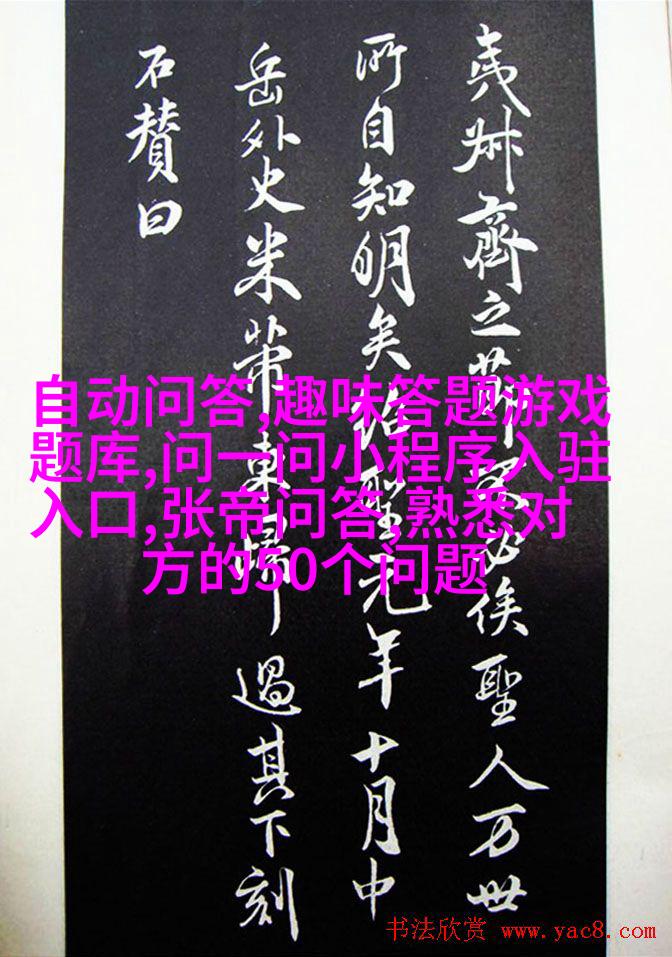 夷叔齊之節不必俟聖人万世
所自知明矣紹聖元年十月中
岳外史米芾東歸過其下刻
石賛曰
自动问答,趣味答题游戏
题库,问一问小程序入驻
入口,张帝问答,熟悉对
方的50个问题
书法欣赏 www.yac8.com